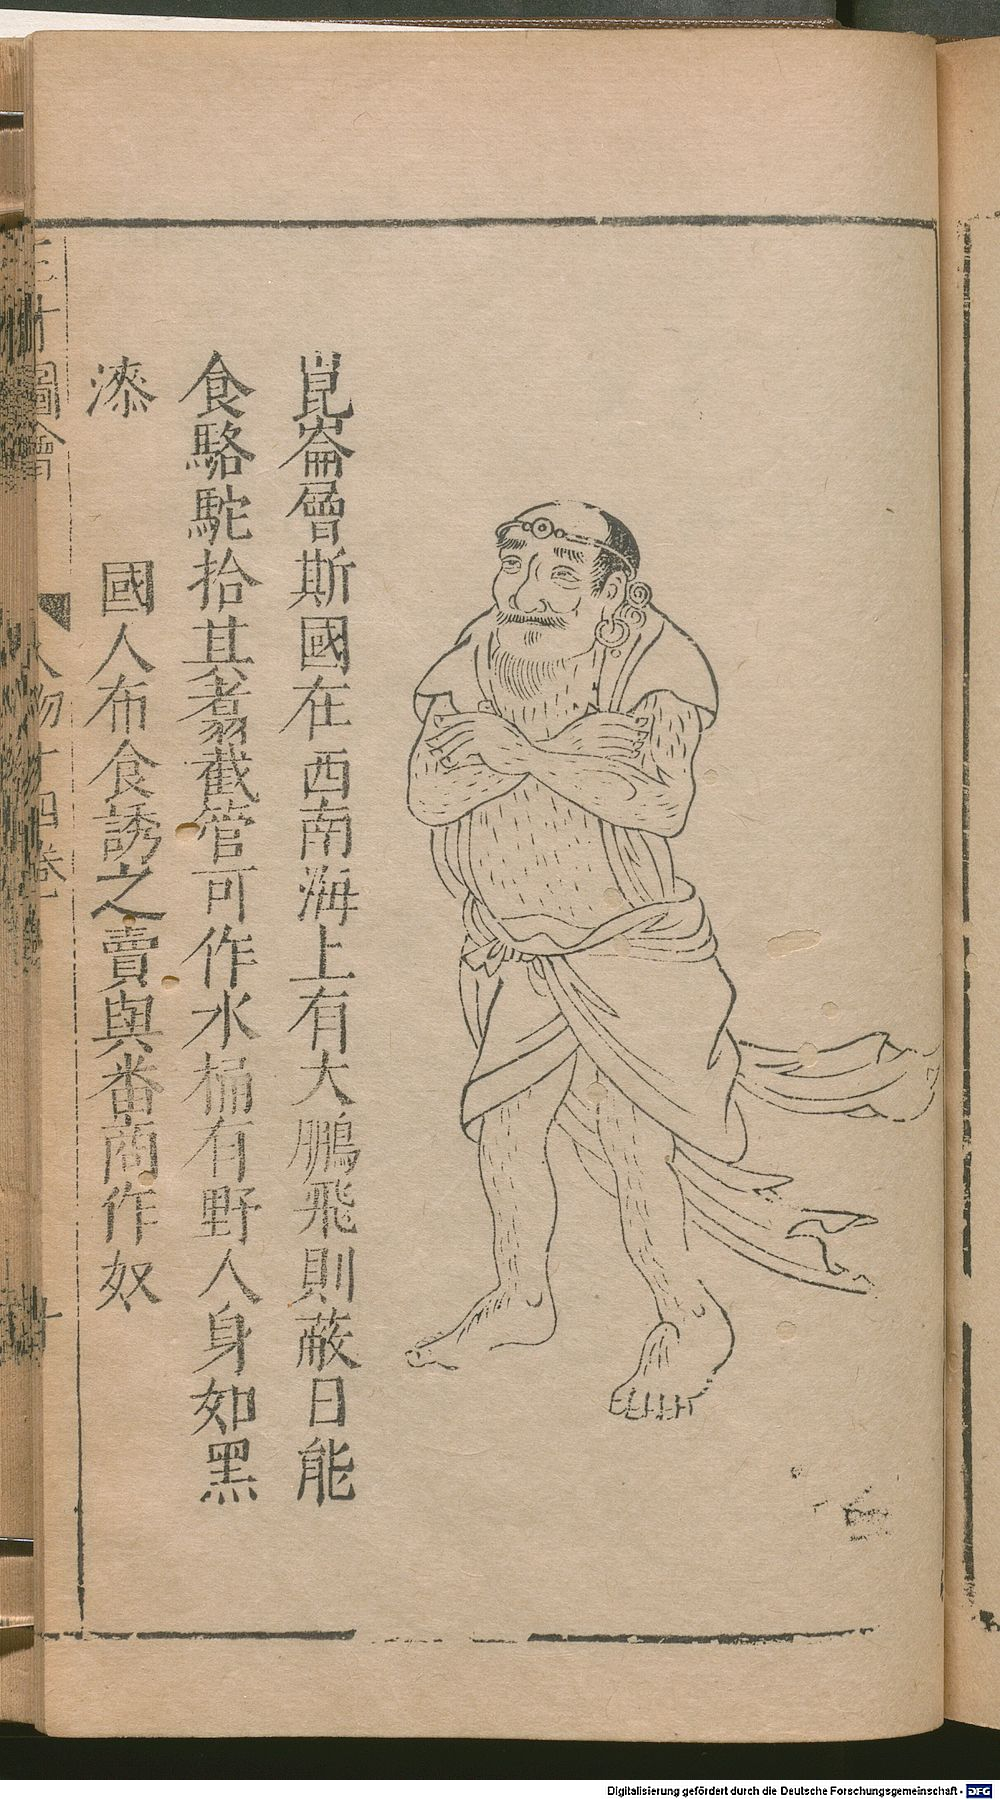 崑崙層斯國在西南海上有大鵬飛則蔽日能
食駱駝拾其翥截管可作水桶有野人身如黑
漆 國人布食誘之賣與番商作奴
圖會 人物十四卷 十
Digitalisierung gefördert durch die Deutsche Forschungsgemeinschaft - DFG